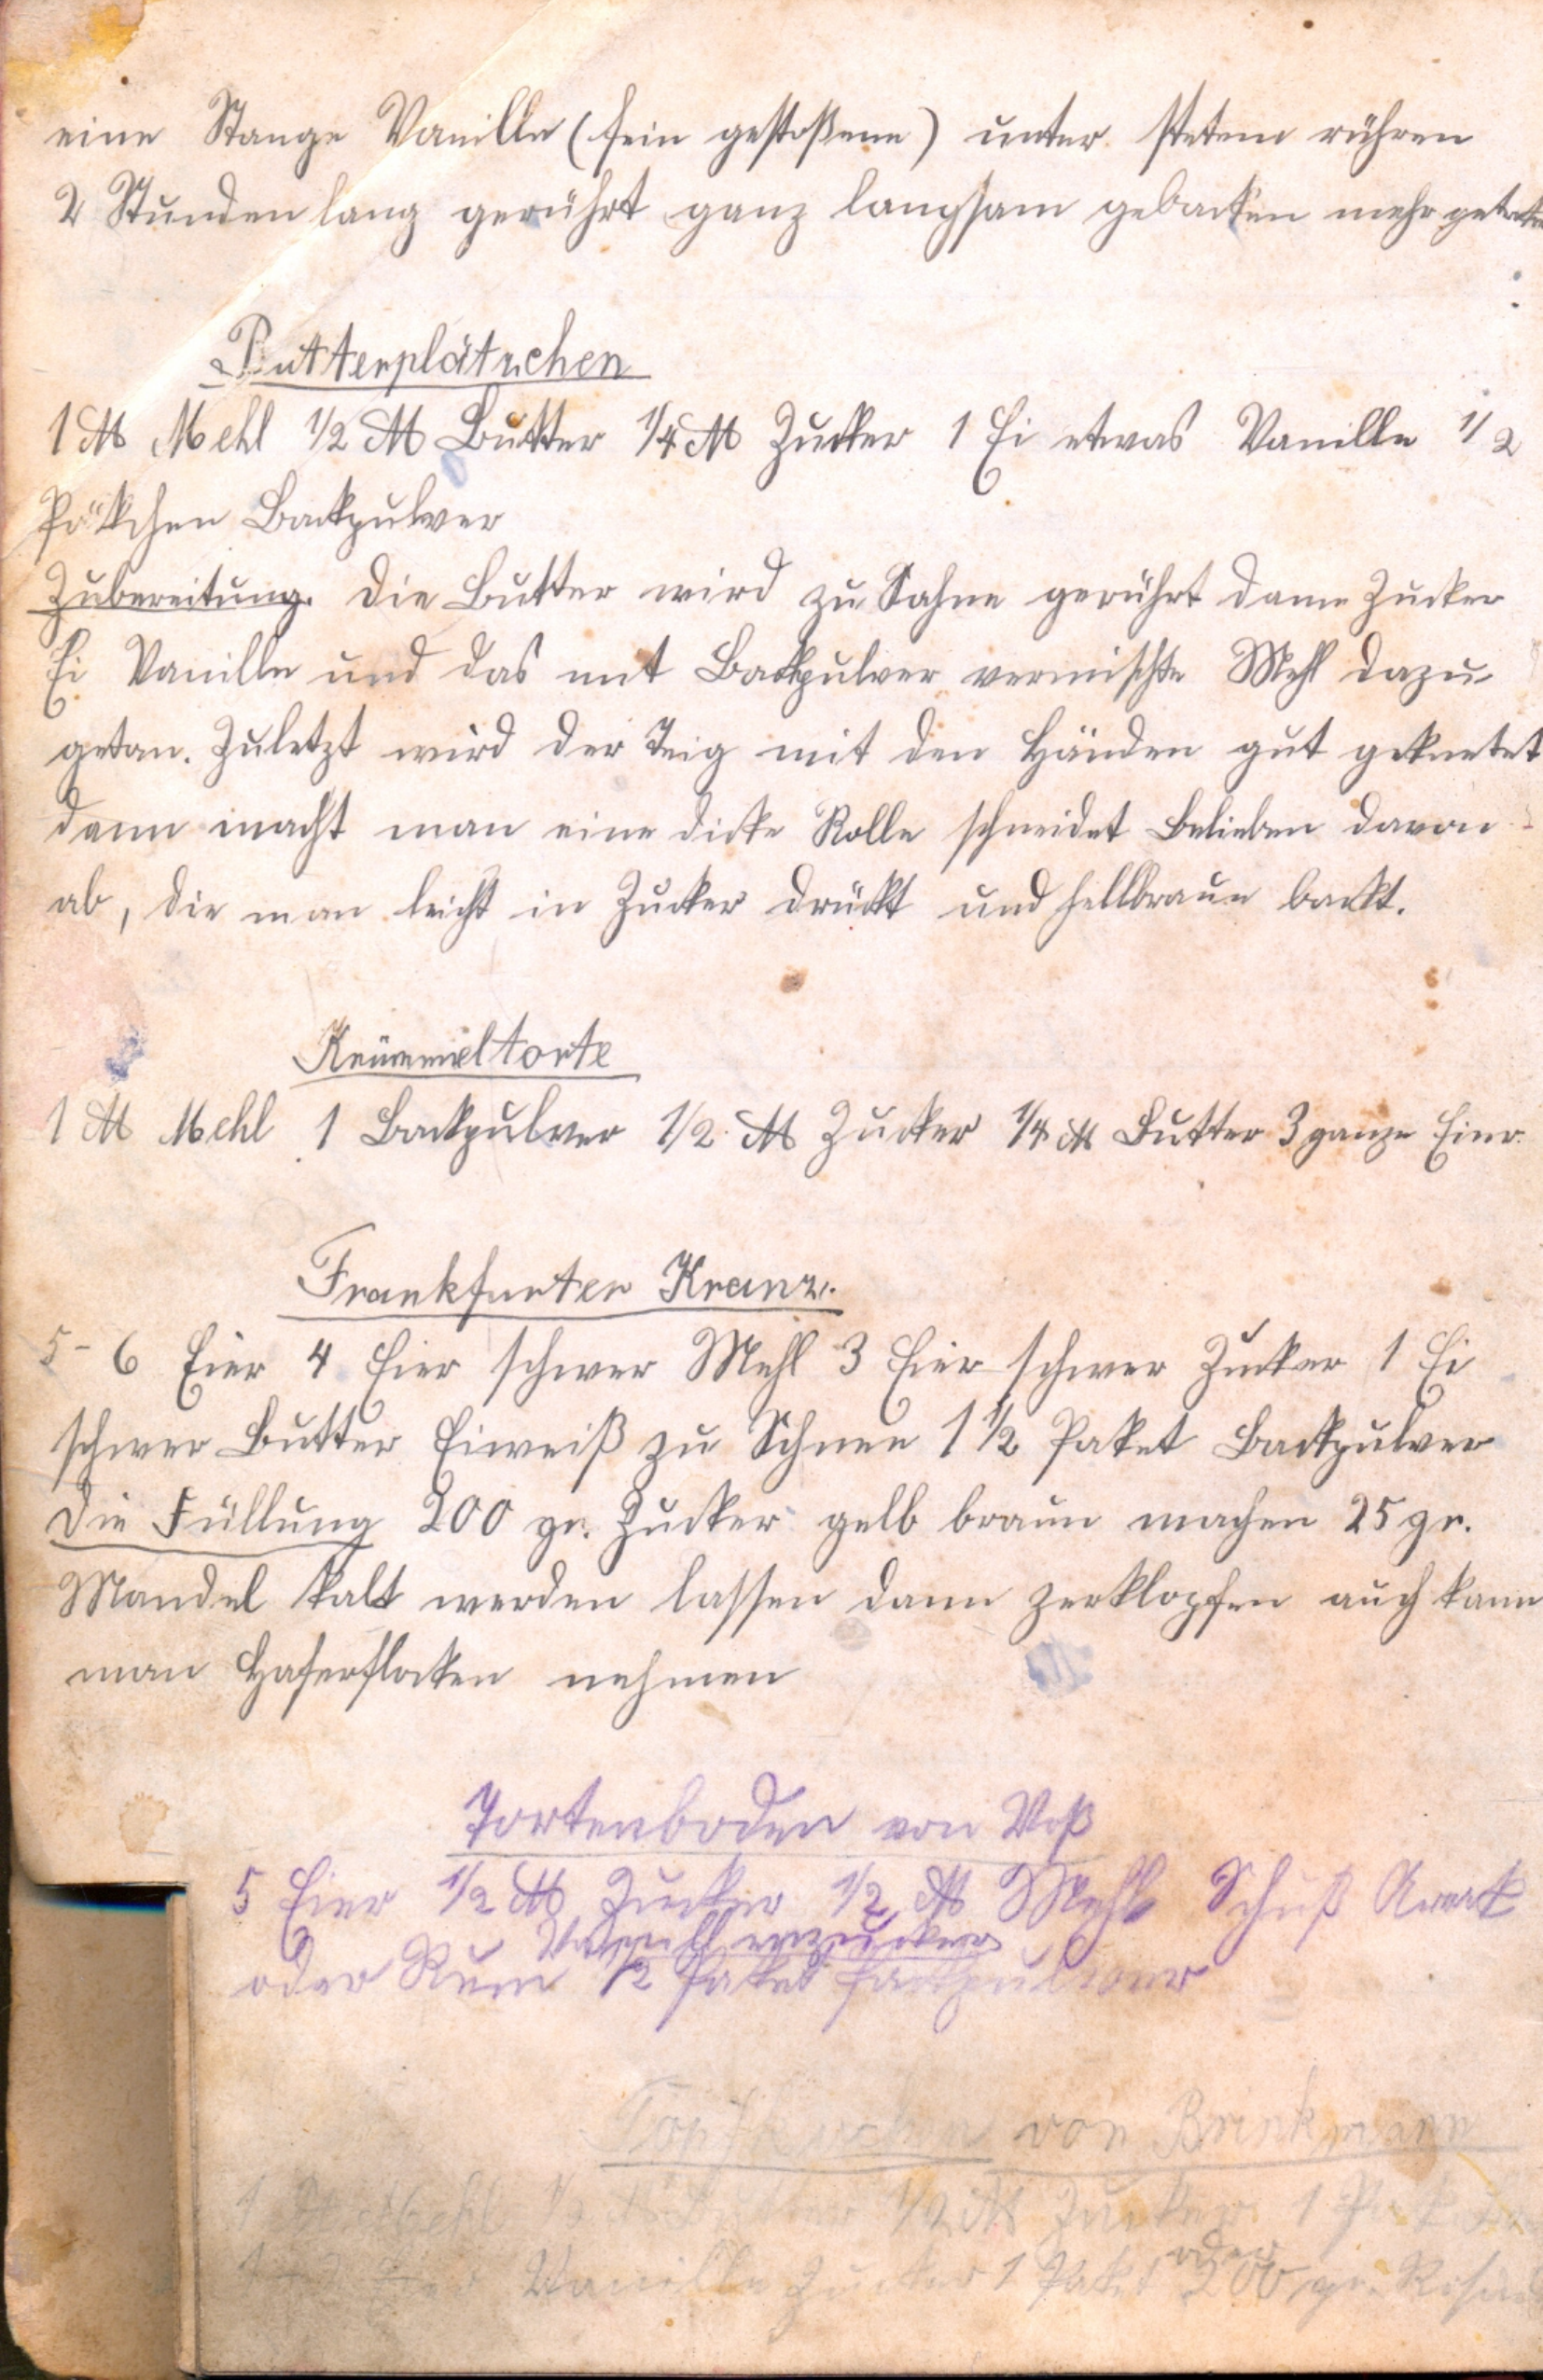 eine Stange Vanille (fein gestoßene) unter stetem rühren
2 Stunden lang gerührt ganz langsam gebacken mehr
Butterplätzchen
1 ℔ Mehl 1/2 ℔ Butter 1/4 ℔ Zucker 1 Ei etwas Vanille 1/2
Päckchen Backpulver
Zubereitung. Die Butter wird zu Sahne gerührt dann Zucker
Ei Vanille und das mit Backpulver vermischte Mehl dazu
getan. Zuletzt wird der Teig mit den Händen gut geknetet
dann macht man eine dicke Rolle schneidet Belieben davon
ab, die man leicht in Zucker drückt und hellbraun backt.
Krümmeltorte
1 ℔ Mehl 1 Backpulver 1/2 ℔ Zucker 1/4 ℔ Butter 3 ganze Eier.
Frankfurter Kranz.
5-6 Eier 4 Eier schwer Mehl 3 Eier schwer Zucker 1 Ei
schwer Butter Eiweiß zu Schnee 1 1/2 Paket Backpulver
Die Füllung 200 gr. Zucker gelb braun machen 25 gr.
Mandel kalt werden lassen dann zerklopfen auch kann
man Haferflocken nehmen
Tortenboden von Voß
5 Eier 1/2 ℔ Zucker 1/2 ℔ Mehl Schuß Arrak
Vanillezucker
oder Rum 1/2 Paket Backpulver
Topfkuchen von Brinkmann
1 ℔ Mehl 1/2 ℔ Butter 1/2 ℔ Zucker 1
oder
Vanille Zucker 1 Paket 200 gr.